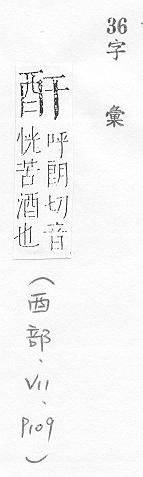 36 字彙
呼朗切音
恍苦酒也
(酉部、VII、P109)